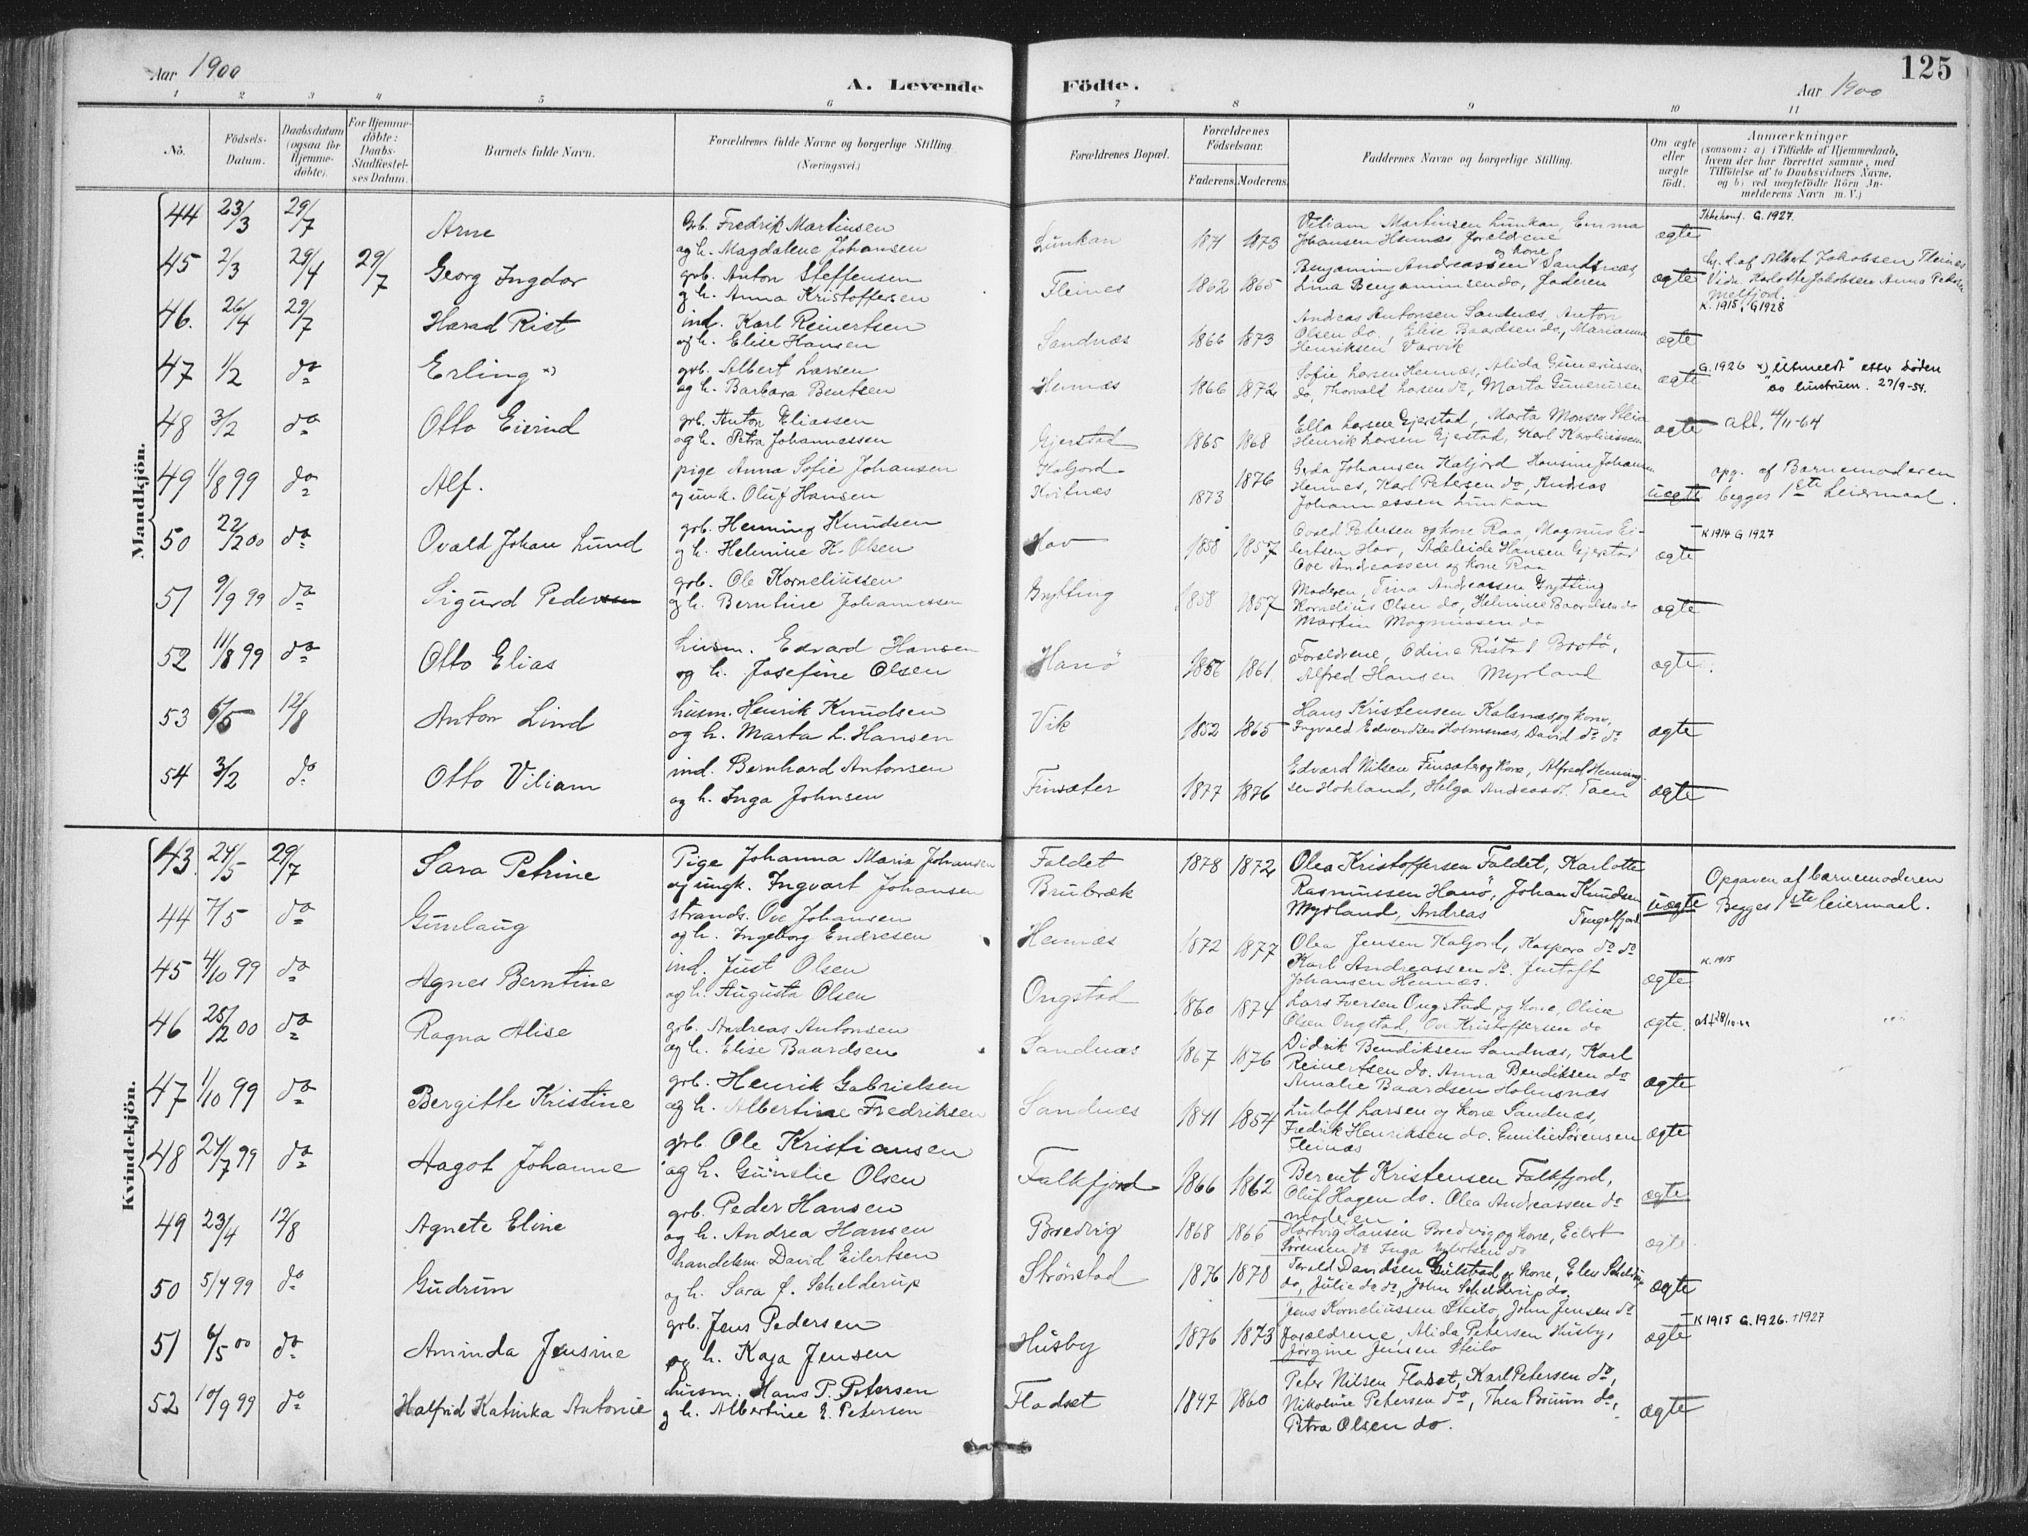 Aar 1900
A. Levende
Födte.
Aar 1900
125
1 2 3 4 5 6 7 8 9 10 11
No.
Födsels-Datum.
Daabsdatum (ogsaa for Hjemme-döbte).
For Hjemme-döbte: Daabs-Stadfæstel-ses Datum.
Barnets fulde Navn.
Forældrenes fulde Navne og borgerlige Stilling.
(Næringsvei.)
Forældrenes Bopæl.
Forældrenes Födselsaar.
Faderens. Moderens.
Faddernes Navne og borgerlige Stilling.
Om ægte eller uægte födt.
Anmærkninger
(saasom: a) i Tilfælde af Hjemmedaab,
hvem der har forrettet samme, med
Tilföielse af to Daabsvidners Navne,
og b) ved uægtefödte Börn An-
melderens Navn m. V.)
Mandkjön.
44 23/3 29/7 Arne
Grb. Fredrik Martinsen
og h. Magdalene Johansen
Lunkan 1871 1873
Viliam Martinsen Lunkan, Emma
Johansen Hennæs Forældrene
ægte
Ikke konf. G. 1927.
45 2/3 29/4 29/7 Georg Ingdor
grb. Anton Steffensen
og h. Anna Kristoffersen
Fleines 1862 1865
Benjamin Andreassen og kone Sandnæs,
Lina Benjaminsen do, Faderen
ægte
Hj. d. af Albert Jakobsen Fleines
Vidn. Karlotte Jakobsen Anna Peders
Melfjord.
46. 26/4 29/7 Harad Rist
ind. Karl Reinertsen
og h. Elise Hansen
Sandnæs 1866 1873
Andreas Antonsen Sandnæs, Anton
Olsen do, Elise Baardsen do, Marianna
Henriksen Varvik
ægte
K. 1915, G 1928
47 1/2 do Erling x)
grb. Albert Larsen
og h. Barbara Bentsen
Hennæs 1866 1872
Sofie Larsen Hennæs, Alida Gunerussen
do, Thorvald Larsen do, Marta Gunerusen
ægte
G. 1926
48 3/2 do Otto Eivind
grb. Anton Eliassen
og h. Petra Johannessen
Gjerstad 1865 1868
Ella Larsen Gjerstad, Marta Monsen Steilo
Henrik Larsen Gjerstad, Karl Karliussen
ægte
49 1/8 99 do Alf.
pige Anna Sofie Johansen
og unk. Oluf Hansen
Kaljord
Kvitnæs 1873 1876
Gerda Johansen Kaljord Hansine Johansen
Hennes, Karl Petersen do, Andreas
Johannessen Lunkan
uægte
opg. af Barnemoderen
begges 1ste Leiermaal.
50 22/2 00 do Ovald Johan Lund
grb. Henning Knudsen
og h. Helmine H. Olsen
Hov 1858 1857
Ovald Petersen og kone Raa, Magnus Ei-
lertsen Hov, Adeleide Hansen Gjerstad
Ove Andreassen og kone Raa
ægte
K 1914 G 1927
51 9/9 99 do Sigurd Pedersen
grb. Ole Korneliussen
og h. Berntine Johannessen
Grytting 1858 1857
Moderen, Tina Andreassen Grytting
Kornelius Olsen do, Helmine Baardsen do
Martin Magnussen do
ægte
52 11/8 99 do Otto Elias
husm. Edvard Hansen
og h. Josefine Olsen
Hanø 1856 1861
Forældrene, Odine Ristad Brotø,
Alfred Hansen Myrland
ægte.
53 6/5 12/8 Anton Lind
husm. Henrik Knudsen
og h. Marta L. Hansen
Vik 1852 1865
Hans Kristensen Kalsnæs og kone,
Ingvald Edvardsen Holmsnæs, David do do
ægte
54 3/2 do Otto Viliam
ind. Bernhard Antonsen
og h. Inga Johnsen
Finsæter 1877 1876
Edvard Nilsen Finsæter og kone, Alfred Henning-
sen Hokland, Helga Andreasd. Taen
ægte
Kvindekjön.
43. 24/5 29/7 Sara Petrine
Pige Johanna Maria Johansen
og ungk. Ingvart Johansen
Faldet
Brubræk 1878 1872
Olea Kristoffersen Faldet, Karlotte
Rasmussen Hanø, Johan Knudsen
Myrland, Andreas Tengelfjord
uægte
Opgaven af barnemoderen
Begges 1ste leiermaal.
44 7/5 do Gunlaug
strands. Ove Johansen
og h. Ingeborg Endresen
Hennæs 1872 1877
Olea Jensen Kaljord, Kaspara do do
Karl Andreassen do. Jentoft
Johansen Hennæs.
ægte
K. 1915
45 4/10 99 do Agnes Berntine
ind. Just Olsen
og h. Augusta Olsen
Ongstad 1860 1874
Lars Iversen Ongstad, og kone, Olina
Olsen Ongstad, Ove Kristoffersen do
ægte.
46 25/2 00 do Ragna Alise
grb. Andreas Antonsen
og h. Elise Baardsen
Sandnæs 1867 1876
Didrik Bendiksen Sandnæs, Karl
Reinertsen do. Anna Bendiksen do
Amalie Baardsen Holmsnæs
ægte
47 1/10 99 do Bergitte Kristine
grb. Henrik Gabrielsen
og h. Albertine Fredriksen
Sandnæs 1841 1857
Ludolf Larsen og kone Sandnæs,
Fredrik Henriksen do. Emilie Sørensen
Fleinæs
ægte
48 24/7 99 do Hagot Johanne
grb. Ole Kristiansen
og h. Gunelie Olsen
Falkfjord 1866 1862
Berent Kristensen Falkfjord,
Oluf Hagen do. Olea Andreassen do
moderen
ægte
49 23/4 12/8 Agnete Eline
grb. Peder Hansen
og h. Andrea Hansen
Bredvig 1868 1866
Hartvig Hansen Bredvig og kone, Eilert
Sørensen do Inga do
ægte
50 5/7 99 do Gudrun
handelsm. David Eilertsen
og h. Sara J. Schelderup
Strønstad 1876 1878
Tarald Davidsen Gulstad og kone, Eles Schelderup
do, Julie do do, John Schelderup do.
ægte
51 6/5 00 do Aminda Jensine
grb. Jens Pedersen
og h. Kaja Jensen
Husby 1876 1873
Jens Korneliussen Steilo, John Jensen do
forældrene, Alida Petersen Husby,
Jørgine Jensen Steilo
ægte
K 1915 G. 1926. †1927
52 10/9 99 do Halfrid Katinka Antonie
husm. Hans P. Petersen
og h. Albertine E. Petersen
Fladset 1847 1860
Peter Nilsen Fladset, Karl Petersen do,
Nikoline Petersen do, Thea Bruun do,
Petra Olsen do.
ægte